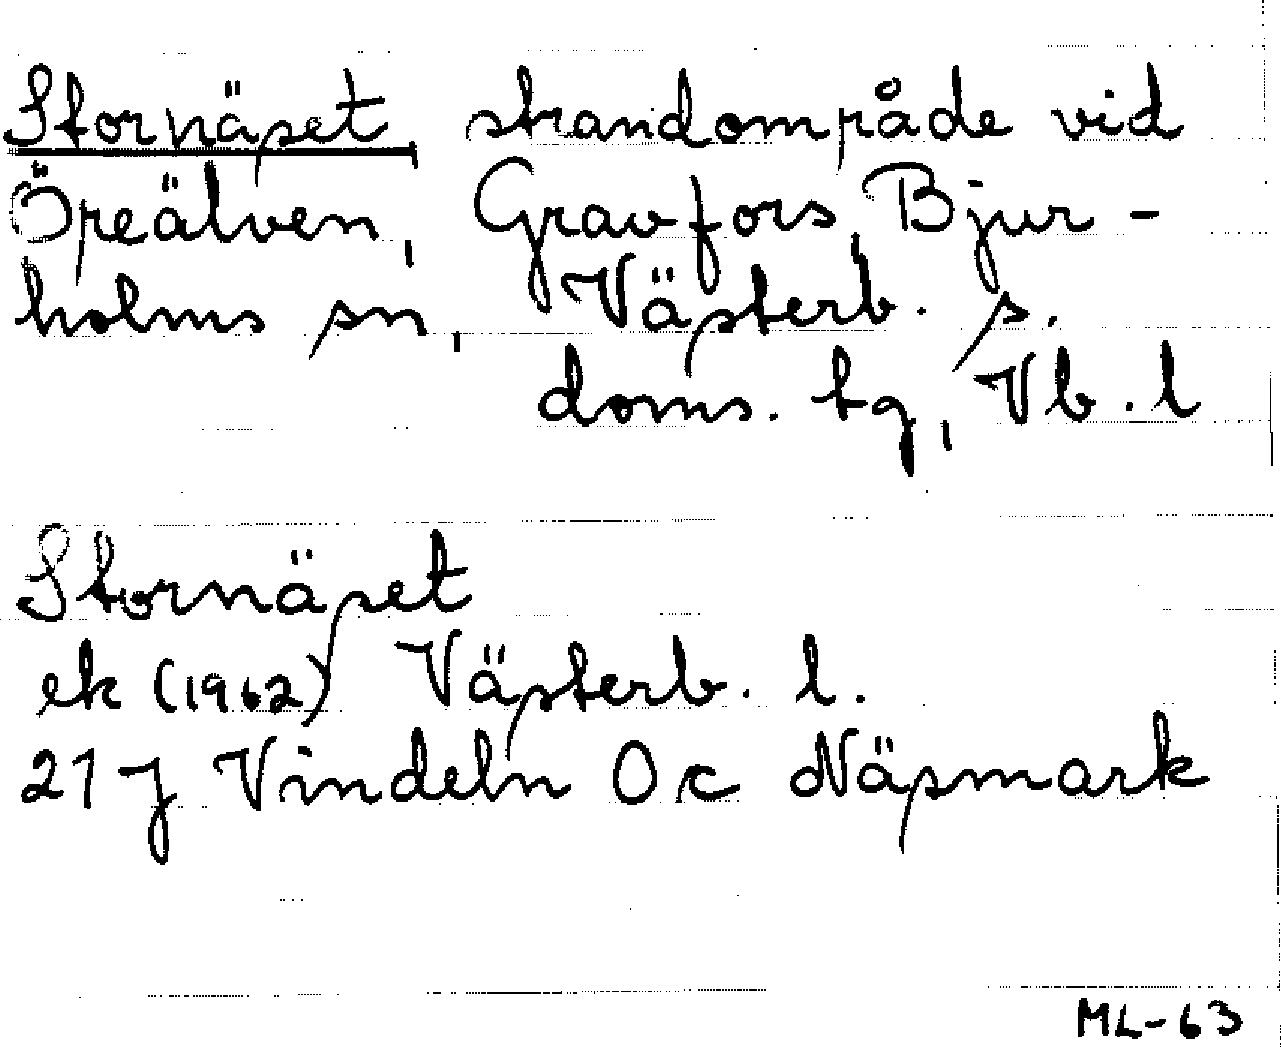 Stornäset, strandområde vid
Öreälven, Gravfors, Bjur-
holms sn, Västerb. s.
doms. tg, Vb. l
Stornäset
ek (1962) Västerb. l.
21 J Vindeln 0 c Näsmark
ML-63